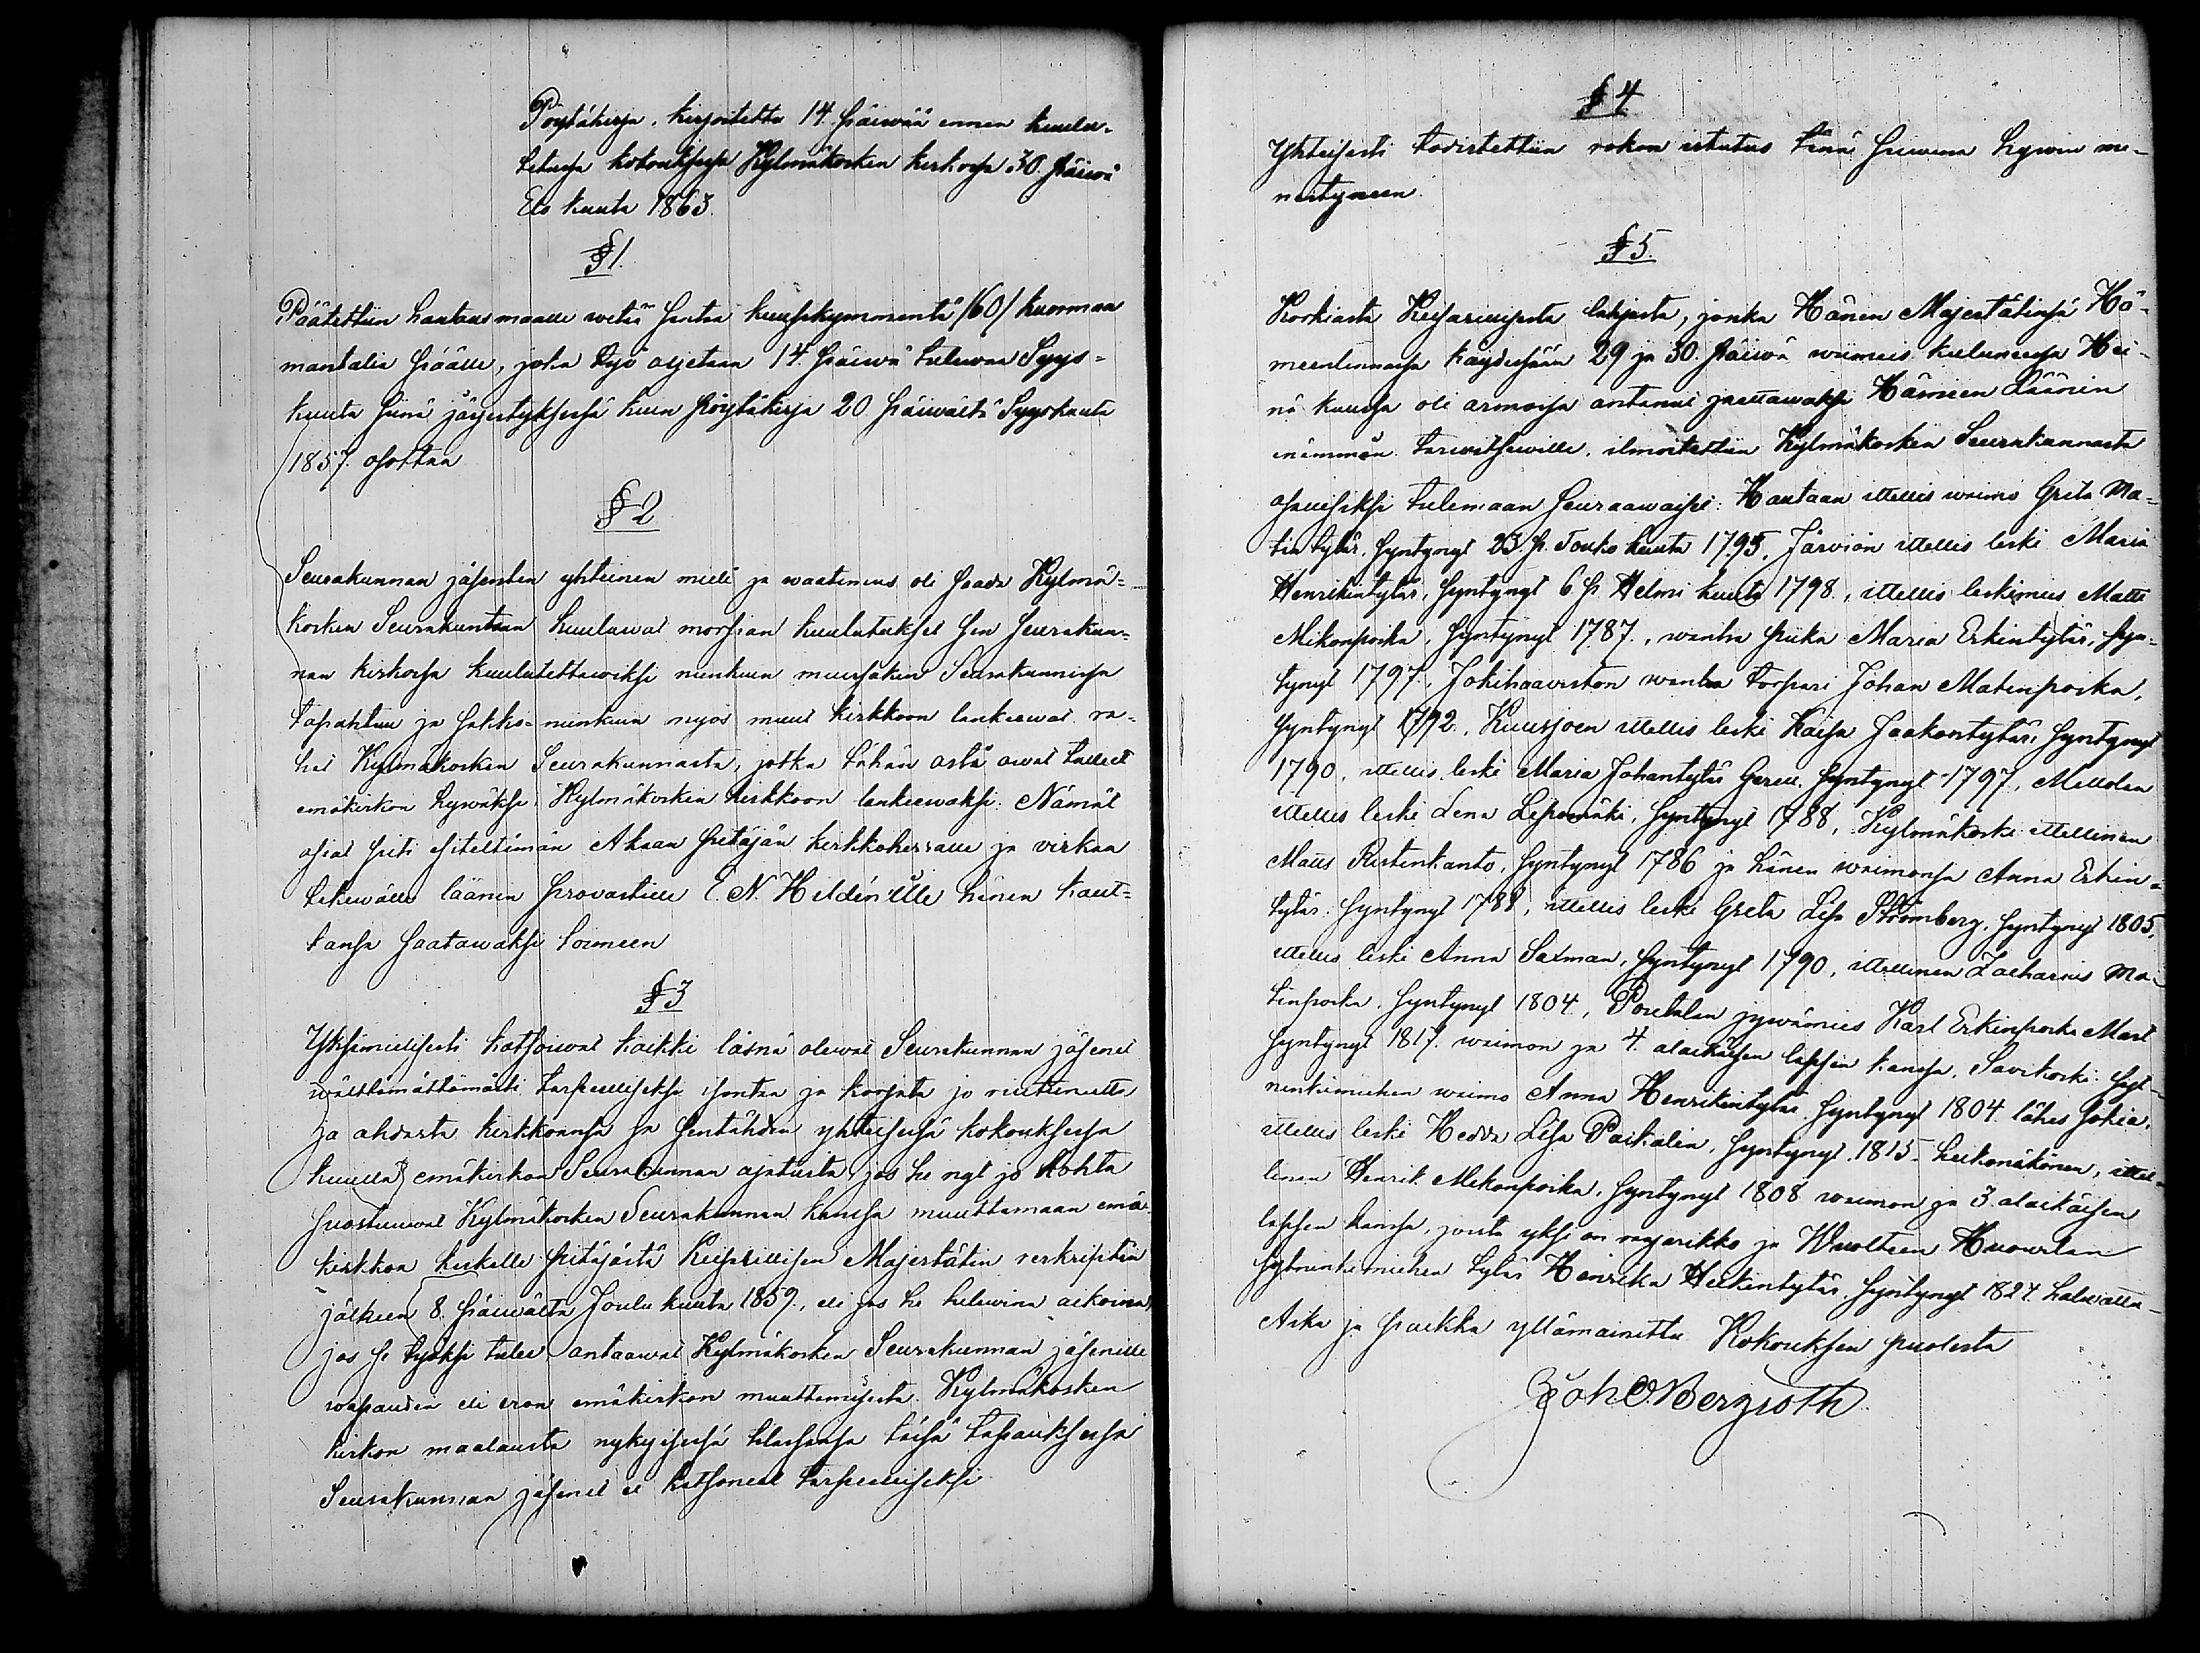 Pöytäkirja, kirjoitettu 14 päiwää ennen kuulu-
tetussa kokouksessa Kylmäkosken kirkossa 30 päiwä
Elo kuuta 1863.
§ 1.
Päätettiin hautausmaalle wetää santaa kuusikymmentä /60/ kuormaa
mantalin päälle, joka työ aljetaan 14 päiwä tulewaa Syys-
kuuta siinä järjestyksessä kuin pöytäkirja 20 päiwältä Syyskuuta
1857 osottaa
§ 2
Seurakunnan jäsenten yhteinen mieli ja waatimus oli saada Kylmä-
kosken Seurakuntaan kuuluwat morsian kuulutukset sen seurakun-
nan kirkossa kuulutettawiksi niinkuin muissakin Seurakunnissa
tapahtuu ja sakko- niinkuin myös muut kirkkoon lankeewat ra-
hat Kylmäkosken Seurakunnasta, jotka tähän asti owat tulleet
emäkirkon hywäksi, Kylmäkosken kirkkoon lankeewaksi. Nämät
asiat piti esiteltämän Akaan pitäjän kirkkoherralle ja virkaa
tekewälle läänin provastille E. N. Hildén'ille hänen kaut-
tansa saatawaksi toimeen
§ 3
Yksimielisesti katsoiwat kaikki läsnä olewat Seurakunnan jäsenet
wälttämättömästi tarpeelliseksi isontaa ja korjata jo
ja ahdasta kirkkoansa ja sentähden yhteisessä kokouksessa
kuulla emäkirkon Seurakunnan ajatusta, jos he nyt jo kohta
suostuiwat Kylmäkosken Seurakunnan kanssa muuttamaan emä-
kirkkoa keskelle pitäjästä Keisarillisen Majestätin reskriptin
jälkeen 8 päiwältä Joulu kuuta 1859, eli jos he tulewina aikoina,
jos se työksi tulee, antaawat Kylmäkosken Seurakunnan jäsenille
wapauden eli eron emäkirkon muuttamisesta. Kylmäkosken
kirkon maalausta nykyisessä tilassansa tässä tapauksessa
Seurakunnan jäsenet ei katsoneet tarpeelliseksi
§ 4
Yhteisesti todistettiin rokon istutus tänä suwena hywin me-
nestyneen.
§ 5.
Korkiasta Keisarillisesta lahjasta, jonka Hänen Majestätinsä Hä-
meenlinnassa käydessään 29 ja 30 päiwä wiimeis kuluneessa Hei-
nä kuussa oli armossa antanut jaettawaksi Hämeen Läänin
enimmän tarwitsewille, ilmoitettiin Kylmäkosken Seurakunnasta
osalliseksi tulemaan seuraawaiset: Hautaan ittellis waimo Greta Ma-
tintytär, syntynyt 23 p. Touko kuuta 1795, Järviön ittellis leski Maria
Henrikintytär, syntynyt 6 p. Helmi kuuta 1798, ittellis leskimies Matti
Mikonpoika, syntynyt 1787, wanha piika Maria Erkintytär, syn-
tynyt 1797, Jokihaaviston wanha torpari Johan Matinpoika,
syntynyt 1792, Kuusjoen ittellis leski Kaisa Jaakontytär, syntynyt
1790, ittellis leski Maria Johantytär syntynyt 1797, Mellolan
ittellis leski Lena Lepomäki, syntynyt 1788, Kylmäkoski ittellinen
Matts Ristenkanto, syntynyt 1786 ja hänen waimonsa Anna Erkin-
tytär syntynyt 1788, ittellis leski Greta Lisa Strömberg, syntynyt 1805,
ittellis leski Anna Saxman, syntynyt 1790, ittellinen Zacharias Ma-
tinpoika, syntynyt 1804, Poutalan jywämies Karl Erkinpoika Mart
syntynyt 1817 waimon ja 4 alaikäisen lapsen kanssa, Savikoski: syt-
ninkimiehen waimo Anna Henrikintytär syntynyt 1804 lähes sokia,
ittellis leski Hedda Lisa Paikalin, syntynyt 1815, heikonäkönen, ittel-
linen Henrik Mikonpoika, syntynyt 1808 waimon ja 3 alaikäisen
lapsen kanssa, joista yksi on wajarikko ja Wuolteen Huowilan
sytninkimiehen tytär Henrika Heikintytär, syntynyt 1827 halwattu
Aika ja paikka yllämainittu Kokouksen puolesta
Joh. O. Bergroth